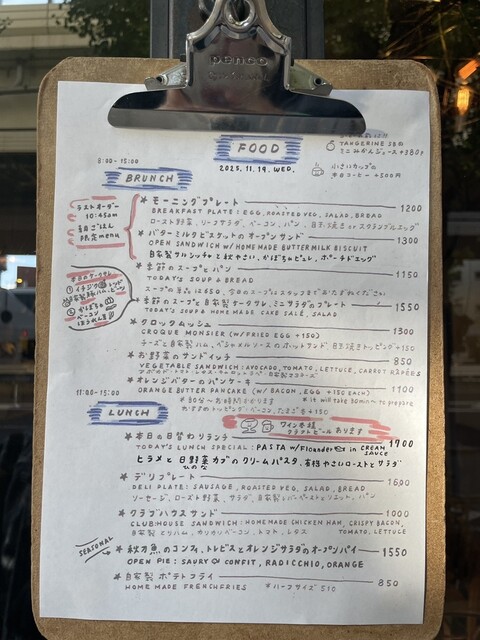 penco
FOOD
2025.11.19.WED.
TANGERINE JUICE
ミニみかんジュース +380
小さいカップの
本日コーヒー +300円
8:00 - 15:00
BRUNCH
ラストオーダー
10:45am
朝ごはん
限定menu
モーニングプレート 1200
BREAKFAST PLATE: EGG, ROASTED VEG, SALAD, BREAD
ロースト野菜、リーフサラダ、ベーコン、パン、目玉焼き or スクランブルエッグ
バターミルクビスケットのオープンサンド 1300
OPEN SANDWICH W/ HOME MADE BUTTER MILK BISCUIT
季節のスープとパン 1150
TODAY'S SOUP & BREAD
季節のスープと自家製ケークサレ、ミニサラダのプレート 1550
TODAY'S SOUP & HOME MADE CAKE SALÉ, SALAD
クロックムッシュ 1300
CROQUE MONSIEUR (W/FRIED EGG +150)
チーズと自家製ハム、ベシャメルソースのホットサンド 目玉焼きトッピング +150
お野菜のサンドイッチ 850
VEGETABLE SANDWICH: AVOCADO, TOMATO, LETTUCE, CARROT RÂPÉES
オレンジバターのパンケーキ 1100
ORANGE BUTTER PANCAKE (W/ BACON, EGG +150 EACH)
* it will take 30min~ to prepare
11:00 - 15:00
LUNCH
ワイン各種
クラフトビール あります
本日の日替わりランチ 1700
TODAY'S LUNCH SPECIAL: PASTA W/ Flounder in CREAM SAUCE
ヒラメと日野菜カブのクリームパスタ、有機やさいローストとサラダ
ひのな
デリプレート 1600
DELI PLATE: SAUSAGE, ROASTED VEG, SALAD, BREAD
クラブハウスサンド 1000
CLUBHOUSE SANDWICH: HOMEMADE CHICKEN HAM, CRISPY BACON,
TOMATO, LETTUCE
自家製とりハム、カリカリベーコン、トマト、レタス
SEASONAL
秋刀魚のコンフィ、トレビスとオレンジサラダのオープンパイ 1550
OPEN PIE: SAURY CONFIT, RADICCHIO, ORANGE
自家製ポテトフライ 850
HOME MADE FRENCHFRIES *ハーフサイズ 510